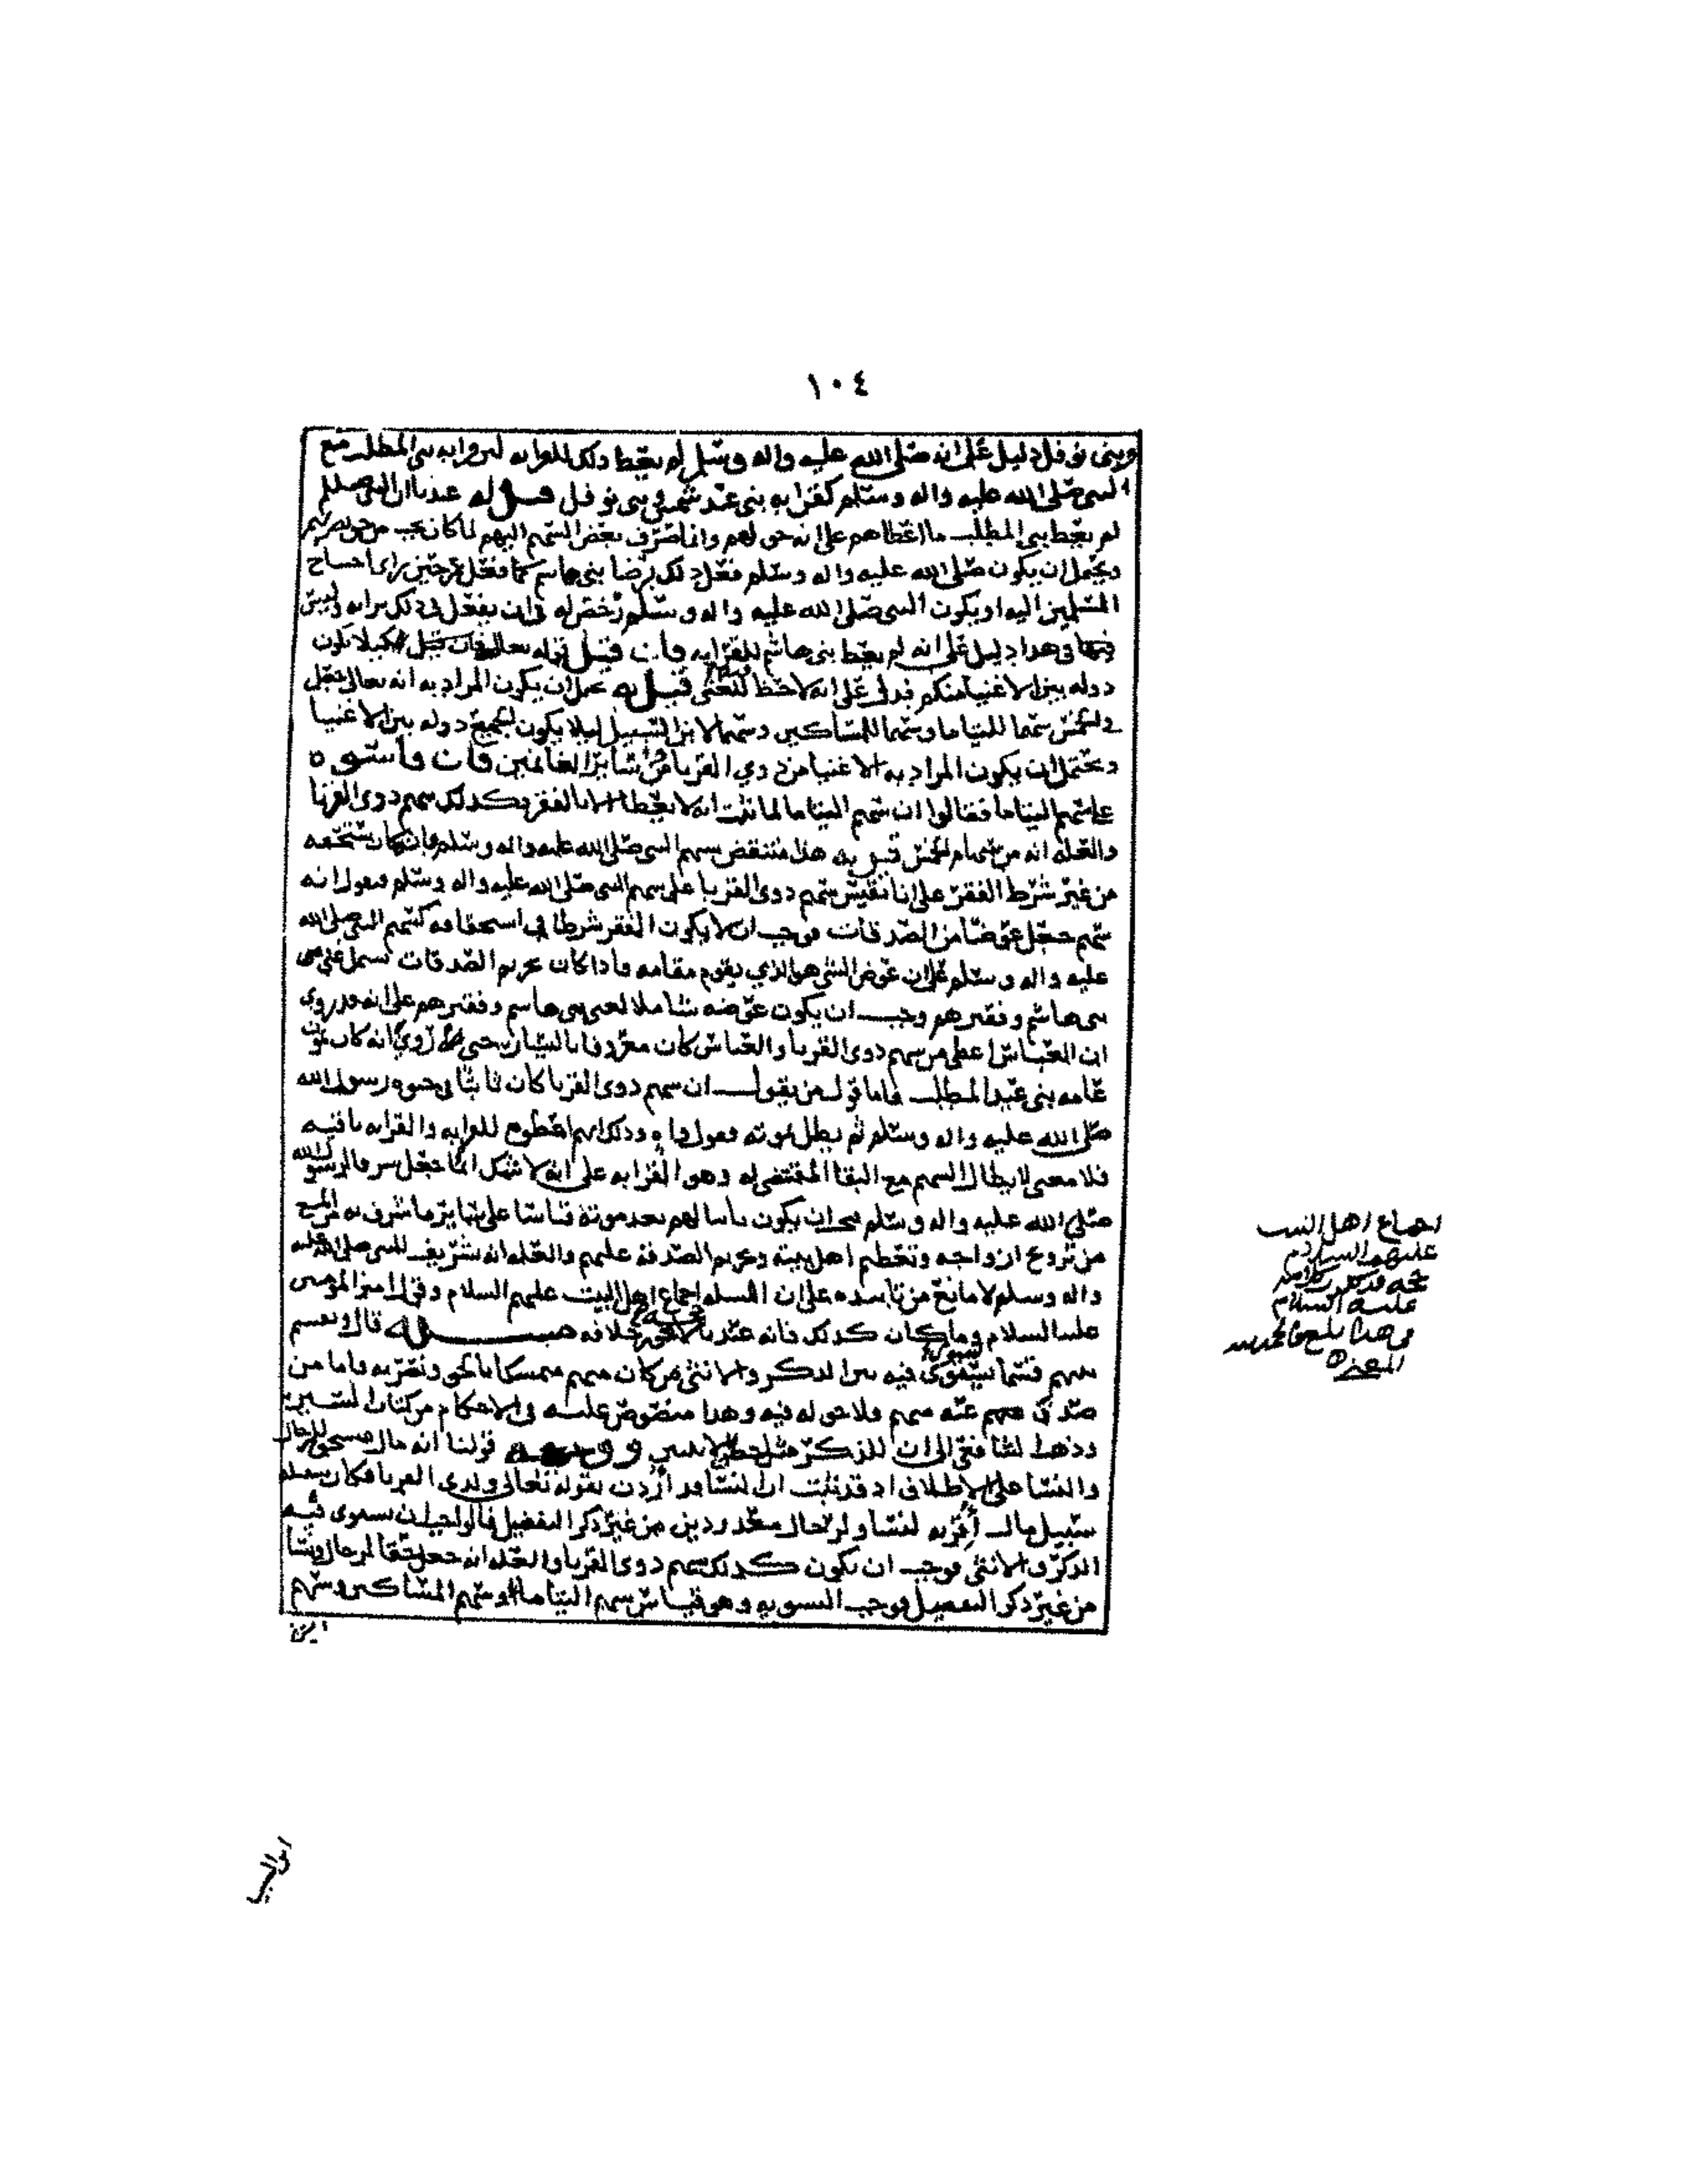 ١٠٤
وبنى نوفل دليل على انه صلى الله عليه واله وسلم لم يعط ذلك للقرابه لان قرابه بنى المطلب مع
النبى صلى الله عليه واله وسلم كقرابه بنى عبد شمس وبنى نوفل قيل له عندنا ان النبى صلى
لم يعط بنى المطلب ما اعطاهم على انه حق لهم وانما صرف بعض السهم اليهم لما كان يجب من حق نصرتهم
ويحتمل ان يكون صلى الله عليه واله وسلم فعل ذلك برضا بنى هاشم كما فعل عمر حين راى احتياج
المسلمين اليه او يكون النبى صلى الله عليه واله وسلم رخص له فى ان يفعل فى ذلك برايه وليس
فى هذا دليل على انه لم يعط بنى هاشم للقرابه فان قيل قوله تعالى كيلا تكون
دوله بين الاغنيا منكم فدل على انه لا حظ للغنى فيه قيل له يحتمل ان يكون المراد به انه تعالى جعل
فى الخمس سهما لليتاما وسهما للمساكين وسهما لابن السبيل ليلا يكون الجميع دوله بين الاغنيا
ويحتمل ان يكون المراد به الاغنيا من ذوي القربا من ساير الغانمين فان قاسوه
على سهم اليتاما فقالوا ان سهم اليتاما لما ثبت انه لا يعطا الا بالفقر فكذلك سهم ذوى القربا
والعله انه من سهام الخمس قيل له هذا منتقض بسهم النبى صلى الله عليه واله وسلم فانه كان يستحقه
من غير شرط الفقر على انا نقيس سهم ذوى القربا على سهم النبى صلى الله عليه واله وسلم فنقول انه
سهم جعل عوضا من الصدقات فوجب ان لا يكون الفقر شرطا فى استحقاقه كسهم النبى صلى الله
عليه واله وسلم على ان عوض الشى هو الذي يقوم مقامه فاذا كان تحريم الصدقات يشمل غنى
بنى هاشم وفقيرهم وجب ان يكون عوضه شاملا لغنى بنى هاشم وفقيرهم على انه قد روى
ان العباس اعطى من سهم ذوى القربا والعباس كان معروفا باليسار حتى روي انه كان يمون
عامه بنى عبد المطلب فاما قول من يقول ان سهم ذوى القربا كان ثابتا فى حيوه رسول الله
صلى الله عليه واله وسلم ثم بطل بموته وذلك انهم اعطوه للقرابه والقرابه باقيه
فلا معنى لابطال السهم مع البقا المقتضى له وهو القرابه على انه لا شك انما جعل شرفا لرسول الله
صلى الله عليه واله وسلم فيجب ان يكون ثابتا لهم بعد موته قياسا على ساير ما شرف به من المنع
من تزويج ازواجه وتعظيم اهل بيته وتحريم الصدقه عليهم والعله انه تشريف للنبى صلى الله عليه
واله وسلم لا مانع من تابيده على ان المسله اجماع اهل البيت عليهم السلام وقول امير المومنين
عليه السلام وما كان كذلك فانه عندنا حجه لا يجوز خلافه مسـله قال ويقسم
بينهم قسما يستوى فيه بين الذكر والانثى من كان منهم متمسكا بالحق ونصرته فاما من
صدف عنهم عنه منهم فلا حق له فيه وهذا منصوص عليه فى الاحكام من كتاب السير
وذهب الشافعى الى ان للذكر مثل حظ الانثيين ووجه قولنا انه مال مستحق للرجال
والنسا على الاطلاق اذ قد ثبت ان النسا قد اردن بقوله تعالى ولذى القربا فكان سبيله
سبيل مال اقر به لنسا ولرجال محدودين من غير ذكر التفضيل فالواجب ان يستوى فيه
الذكر والانثى فوجب ان يكون كذلك سهم ذوى القربا والعله انه جعل حقا لرجال ونسا
من غير ذكر التفضيل فوجب التسويه وهو قياس سهم اليتاما وسهم المساكين وسهم
ابن
اجماع اهل البيت
عليهم السلام
حجه وكذلك كلام
عليه السلام